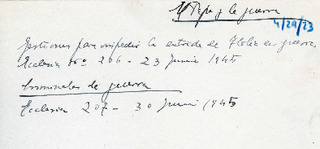 El Papa y la guerra
4/29/23
Gestiones para impedir la entrada de Italia en guerra.
Ecclesia nº 206 - 23 Junio 1945
Criminales de guerra
Ecclesia 207 - 30 Junio 1945